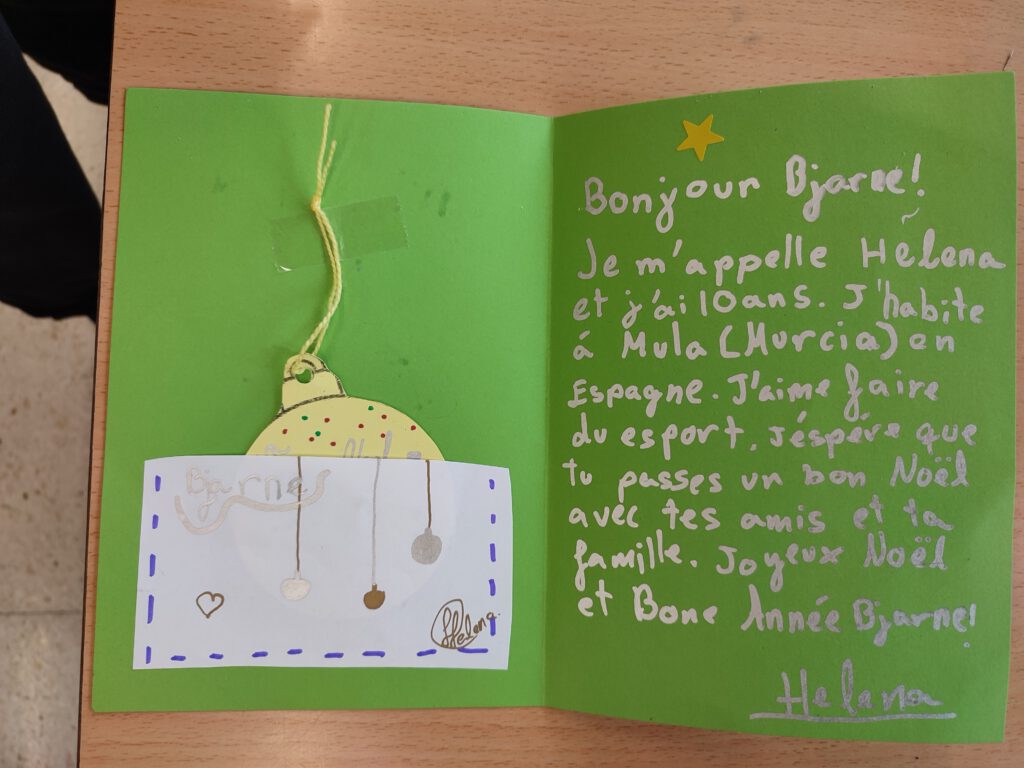 Bjarne
Helena
Bonjour Bjarne!
Je m'appelle Helena
et j'ai 10 ans. J'habite
á Mula (Murcia) en
Espagne. J'aime faire
du esport. J'éspére que
tu passes un bon Noël
avec tes amis et ta
famille. Joyeux Noël
et Bone Année Bjarne!
Helena